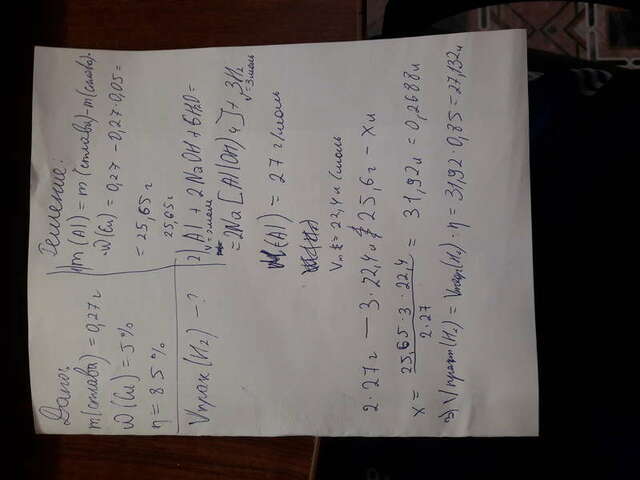 Дано:
m(сплава) = 0,27 г
ω(Cu) = 5%
η = 85%
Vпрак(H₂) – ?
Решение:
1) m(Al) = m(сплава) – m(сплава)·
·ω(Cu) = 0,27 – 0,27·0,05 =
= 25,65 г
25,65 г
2) 2Al + 2NaOH + 6H₂O =
ν=2моль
= 2Na[Al(OH)₄] + 3H₂
ν=3моль
M(Al) = 27 г/моль
Vm = 22,4 л/моль
2·27г — 3·22,4л
25,6г – xл
x = 25,65·3·22,4 / 2·27 = 31,92л = 0,2688л
3) Vпракт(H₂) = Vтеор(H₂)·η = 31,92·0,85 = 27,132л